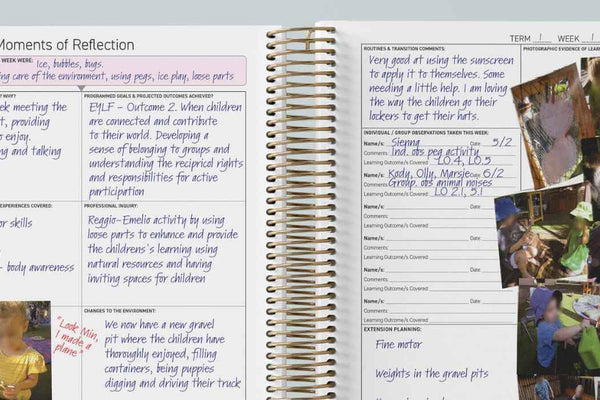 Moments of Reflection
WEEK WERE: Ice, bubbles, bugs.
care of the environment, using pegs, ice play, loose parts
WHY?
meeting the
providing
enjoy.
and talking
EXPERIENCES COVERED:
skills
- body awareness
"Look Min,
I made a
plane"
PROGRAMMED GOALS & PROJECTED OUTCOMES ACHIEVED?
EYLF - Outcome 2. When children
are connected and contribute
to their world. Developing a
sense of belonging to groups and
understanding the reciprical rights
and responsibilities for active
participation
PROFESSIONAL INQUIRY:
Reggio-Emelio activity by using
loose parts to enhance and provide
the childrens's learning using
natural resources and having
inviting spaces for children
CHANGES TO THE ENVIRONMENT:
We now have a new gravel
pit where the children have
thoroughly enjoyed, filling
containers, being puppies
digging and driving their truck
TERM 1 WEEK 1
ROUTINES & TRANSITION COMMENTS:
Very good at using the sunscreen
to apply it to themselves. Some
needing a little help. I am loving
the way the children go their
lockers to get their hats.
INDIVIDUAL / GROUP OBSERVATIONS TAKEN THIS WEEK:
Name/s: Sienna Date 5/2
Comments: Ind. obs peg activity
Learning Outcome/s Covered: LO.4, LO.5
Name/s: Kody, Olly, Marsie Date 6/2
Comments: Group. obs animal noises
Learning Outcome/s Covered: LO 2.1, 5.1
Name/s: Date
Comments:
Learning Outcome/s Covered:
Name/s: Date
Comments:
Learning Outcome/s Covered:
Name/s: Date
Comments:
Learning Outcome/s Covered:
EXTENSION PLANNING:
Fine motor
Weights in the gravel pits
PHOTOGRAPHIC EVIDENCE OF